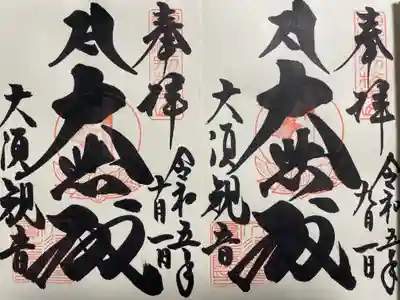 奉拝
令和五年
九月一日
大悲殿
大須観音
奉拝
令和五年
十月一日
大悲殿
大須観音